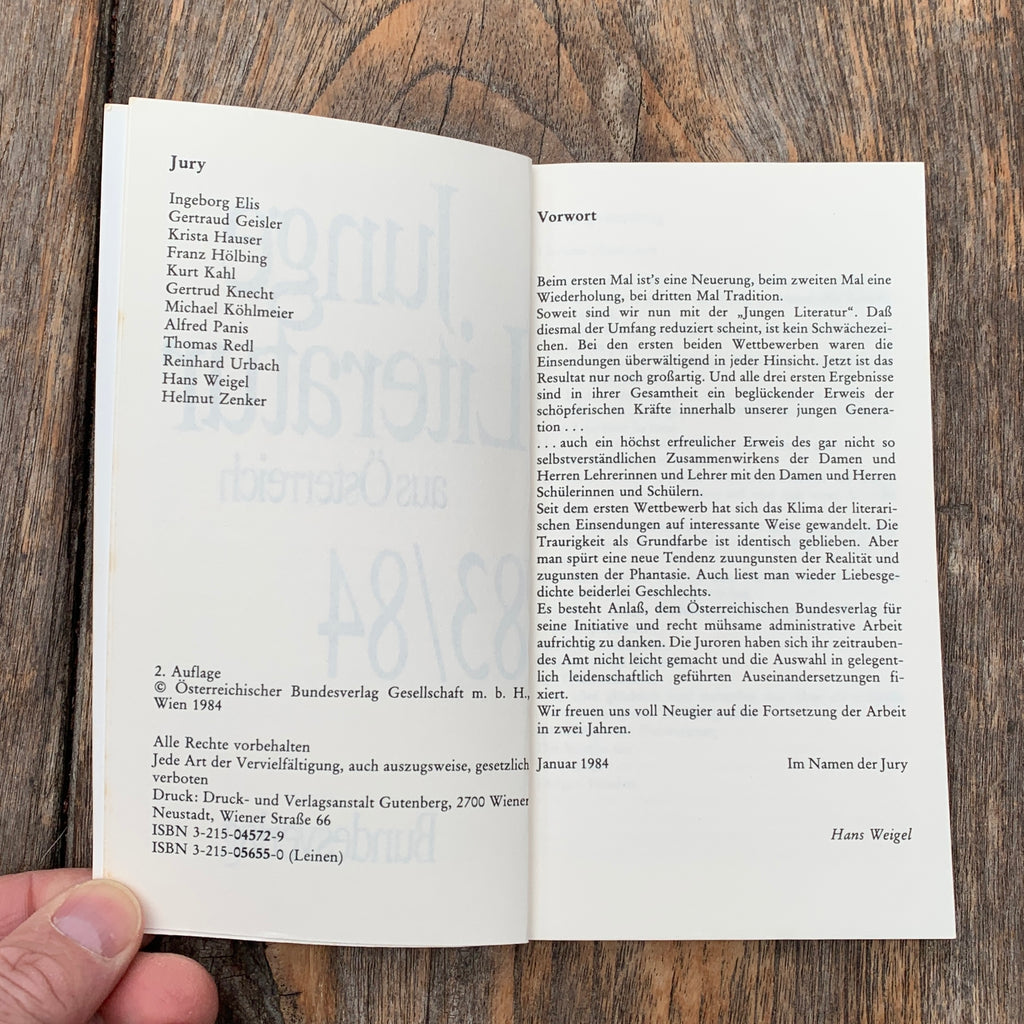 Jury
Ingeborg Elis
Gertraud Geisler
Krista Hauser
Franz Hölbing
Kurt Kahl
Gertrud Knecht
Michael Köhlmeier
Alfred Panis
Thomas Redl
Reinhard Urbach
Hans Weigel
Helmut Zenker
Junge
Literatur
aus Österreich
83/84
2. Auflage
© Österreichischer Bundesverlag Gesellschaft m. b. H.,
Wien 1984
Alle Rechte vorbehalten
Jede Art der Vervielfältigung, auch auszugsweise, gesetzlich
verboten
Druck: Druck- und Verlagsanstalt Gutenberg, 2700 Wiener
Neustadt, Wiener Straße 66
ISBN 3-215-04572-9
ISBN 3-215-05655-0 (Leinen)
Vorwort
Beim ersten Mal ist's eine Neuerung, beim zweiten Mal eine
Wiederholung, bei dritten Mal Tradition.
Soweit sind wir nun mit der „Jungen Literatur“. Daß
diesmal der Umfang reduziert scheint, ist kein Schwächezei-
chen. Bei den ersten beiden Wettbewerben waren die
Einsendungen überwältigend in jeder Hinsicht. Jetzt ist das
Resultat nur noch großartig. Und alle drei ersten Ergebnisse
sind in ihrer Gesamtheit ein beglückender Erweis der
schöpferischen Kräfte innerhalb unserer jungen Genera-
tion . . .
. . . auch ein höchst erfreulicher Erweis des gar nicht so
selbstverständlichen Zusammenwirkens der Damen und
Herren Lehrerinnen und Lehrer mit den Damen und Herren
Schülerinnen und Schülern.
Seit dem ersten Wettbewerb hat sich das Klima der literari-
schen Einsendungen auf interessante Weise gewandelt. Die
Traurigkeit als Grundfarbe ist identisch geblieben. Aber
man spürt eine neue Tendenz zuungunsten der Realität und
zugunsten der Phantasie. Auch liest man wieder Liebesge-
dichte beiderlei Geschlechts.
Es besteht Anlaß, dem Österreichischen Bundesverlag für
seine Initiative und recht mühsame administrative Arbeit
aufrichtig zu danken. Die Juroren haben sich ihr zeitrauben-
des Amt nicht leicht gemacht und die Auswahl in gelegent-
lich leidenschaftlich geführten Auseinandersetzungen fi-
xiert.
Wir freuen uns voll Neugier auf die Fortsetzung der Arbeit
in zwei Jahren.
Januar 1984 Im Namen der Jury
Hans Weigel